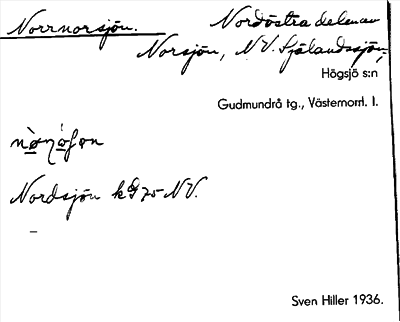 Norrnorsjön. Nordöstra delen av
Norsjön, NV. Själandssjön,
Högsjö s:n
Gudmundrå tg., Västernorrl. l.
Nordsjön kG 75 NV.
–
Sven Hiller 1936.